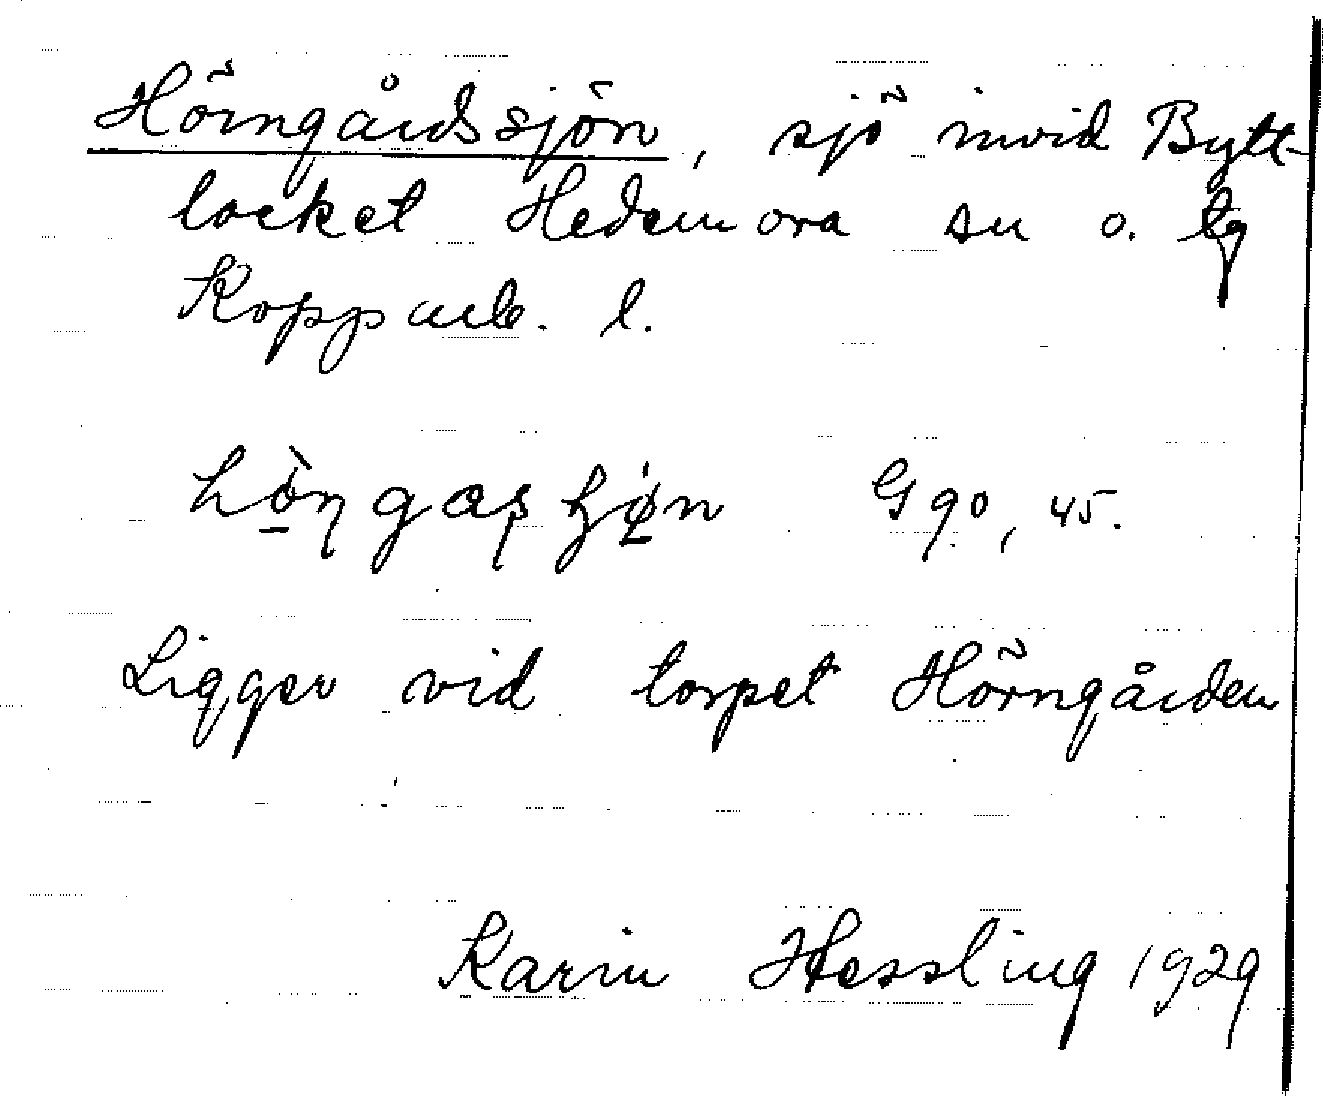 Hörngårdssjön, sjö invid Bytt-
locket Hedemora sn o. tg
Kopparb. l.
G 90, 45.
Ligger vid torpet Hörngården
Karin Hessling 1929